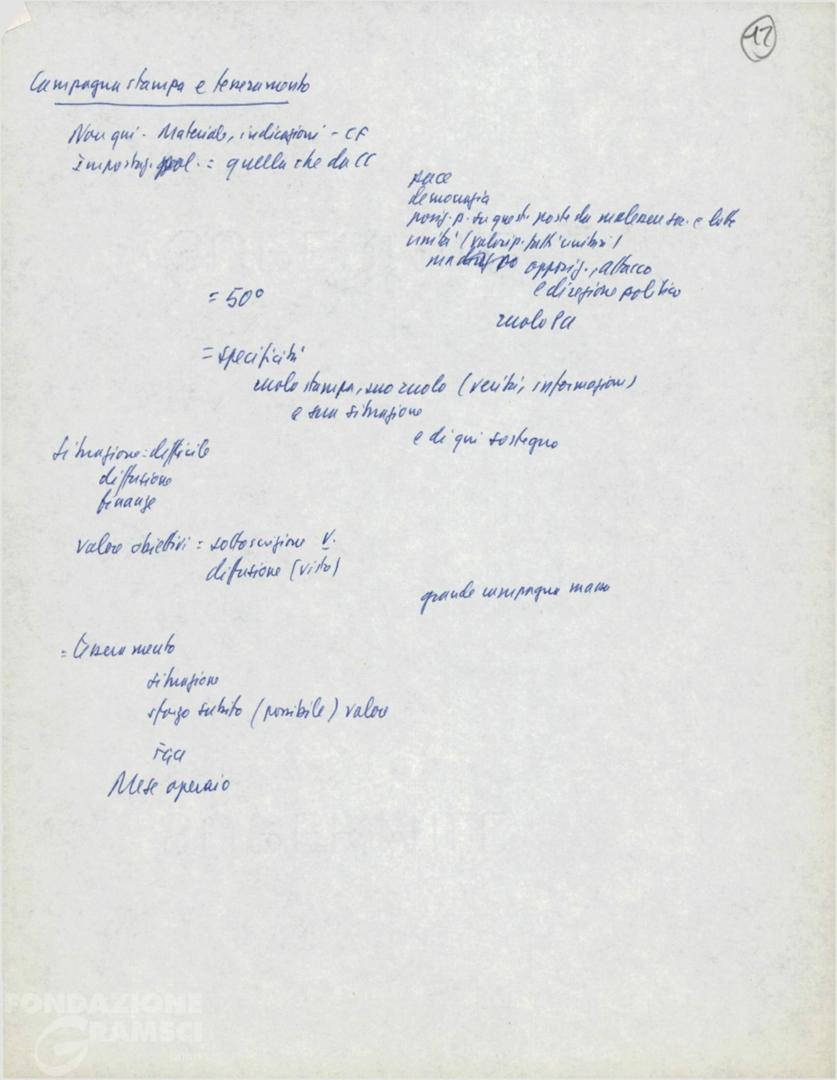 12
Campagna stampa e tesseramento
Non qui - Materiale, indicazioni - CF
Impostaz. pol. = quella che da CC
pace
democrazia
posiz. p. su queste poste da malessere soc. e lotte
unità (valori p. tutti unitari)
ma opposiz., attacco
e direzione politica
ruolo PCI
= 50°
= specificità
ruolo stampa, suo ruolo (verità, informazione)
e sua situazione
e di qui sostegno
Situazione: difficile
diffusione
finanze
valore obiettivi = sottoscrizione v.
difusione (visto)
grande campagna massa
= Tesseramento
situazione
sforzo subito (possibile) valore
FGCI
Mese operaio
FONDAZIONE
GRAMSCI